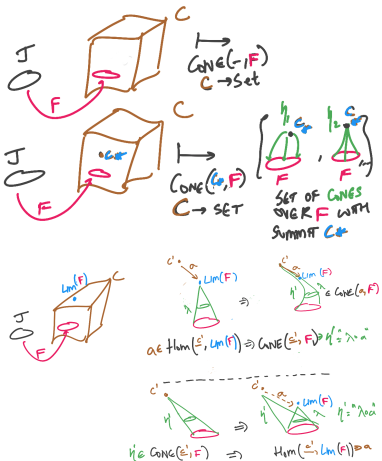 C
J
F
CONE(-,F)
C → Set
C
J
F
C
CONE(C,F)
C → SET
η1
C
η2
C
F
,
F
SET OF CONES
OVER F WITH
SUMMIT C
Lim(F)
C
J
F
c'
a
Lim(F)
λ
⇒
c'
a
Lim(F)
η'
λ
∈ CONE(a,F)
a ∈ Hom(c', Lim(F)) ⇒ CONE(c', F) ∋ η' "=" λ∘a
c'
η'
⇒
c'
a
Lim(F)
η'
λ
η' "=" λ∘a
η' ∈ CONE(c', F) ⇒ Hom(c', Lim(F)) ∋ a